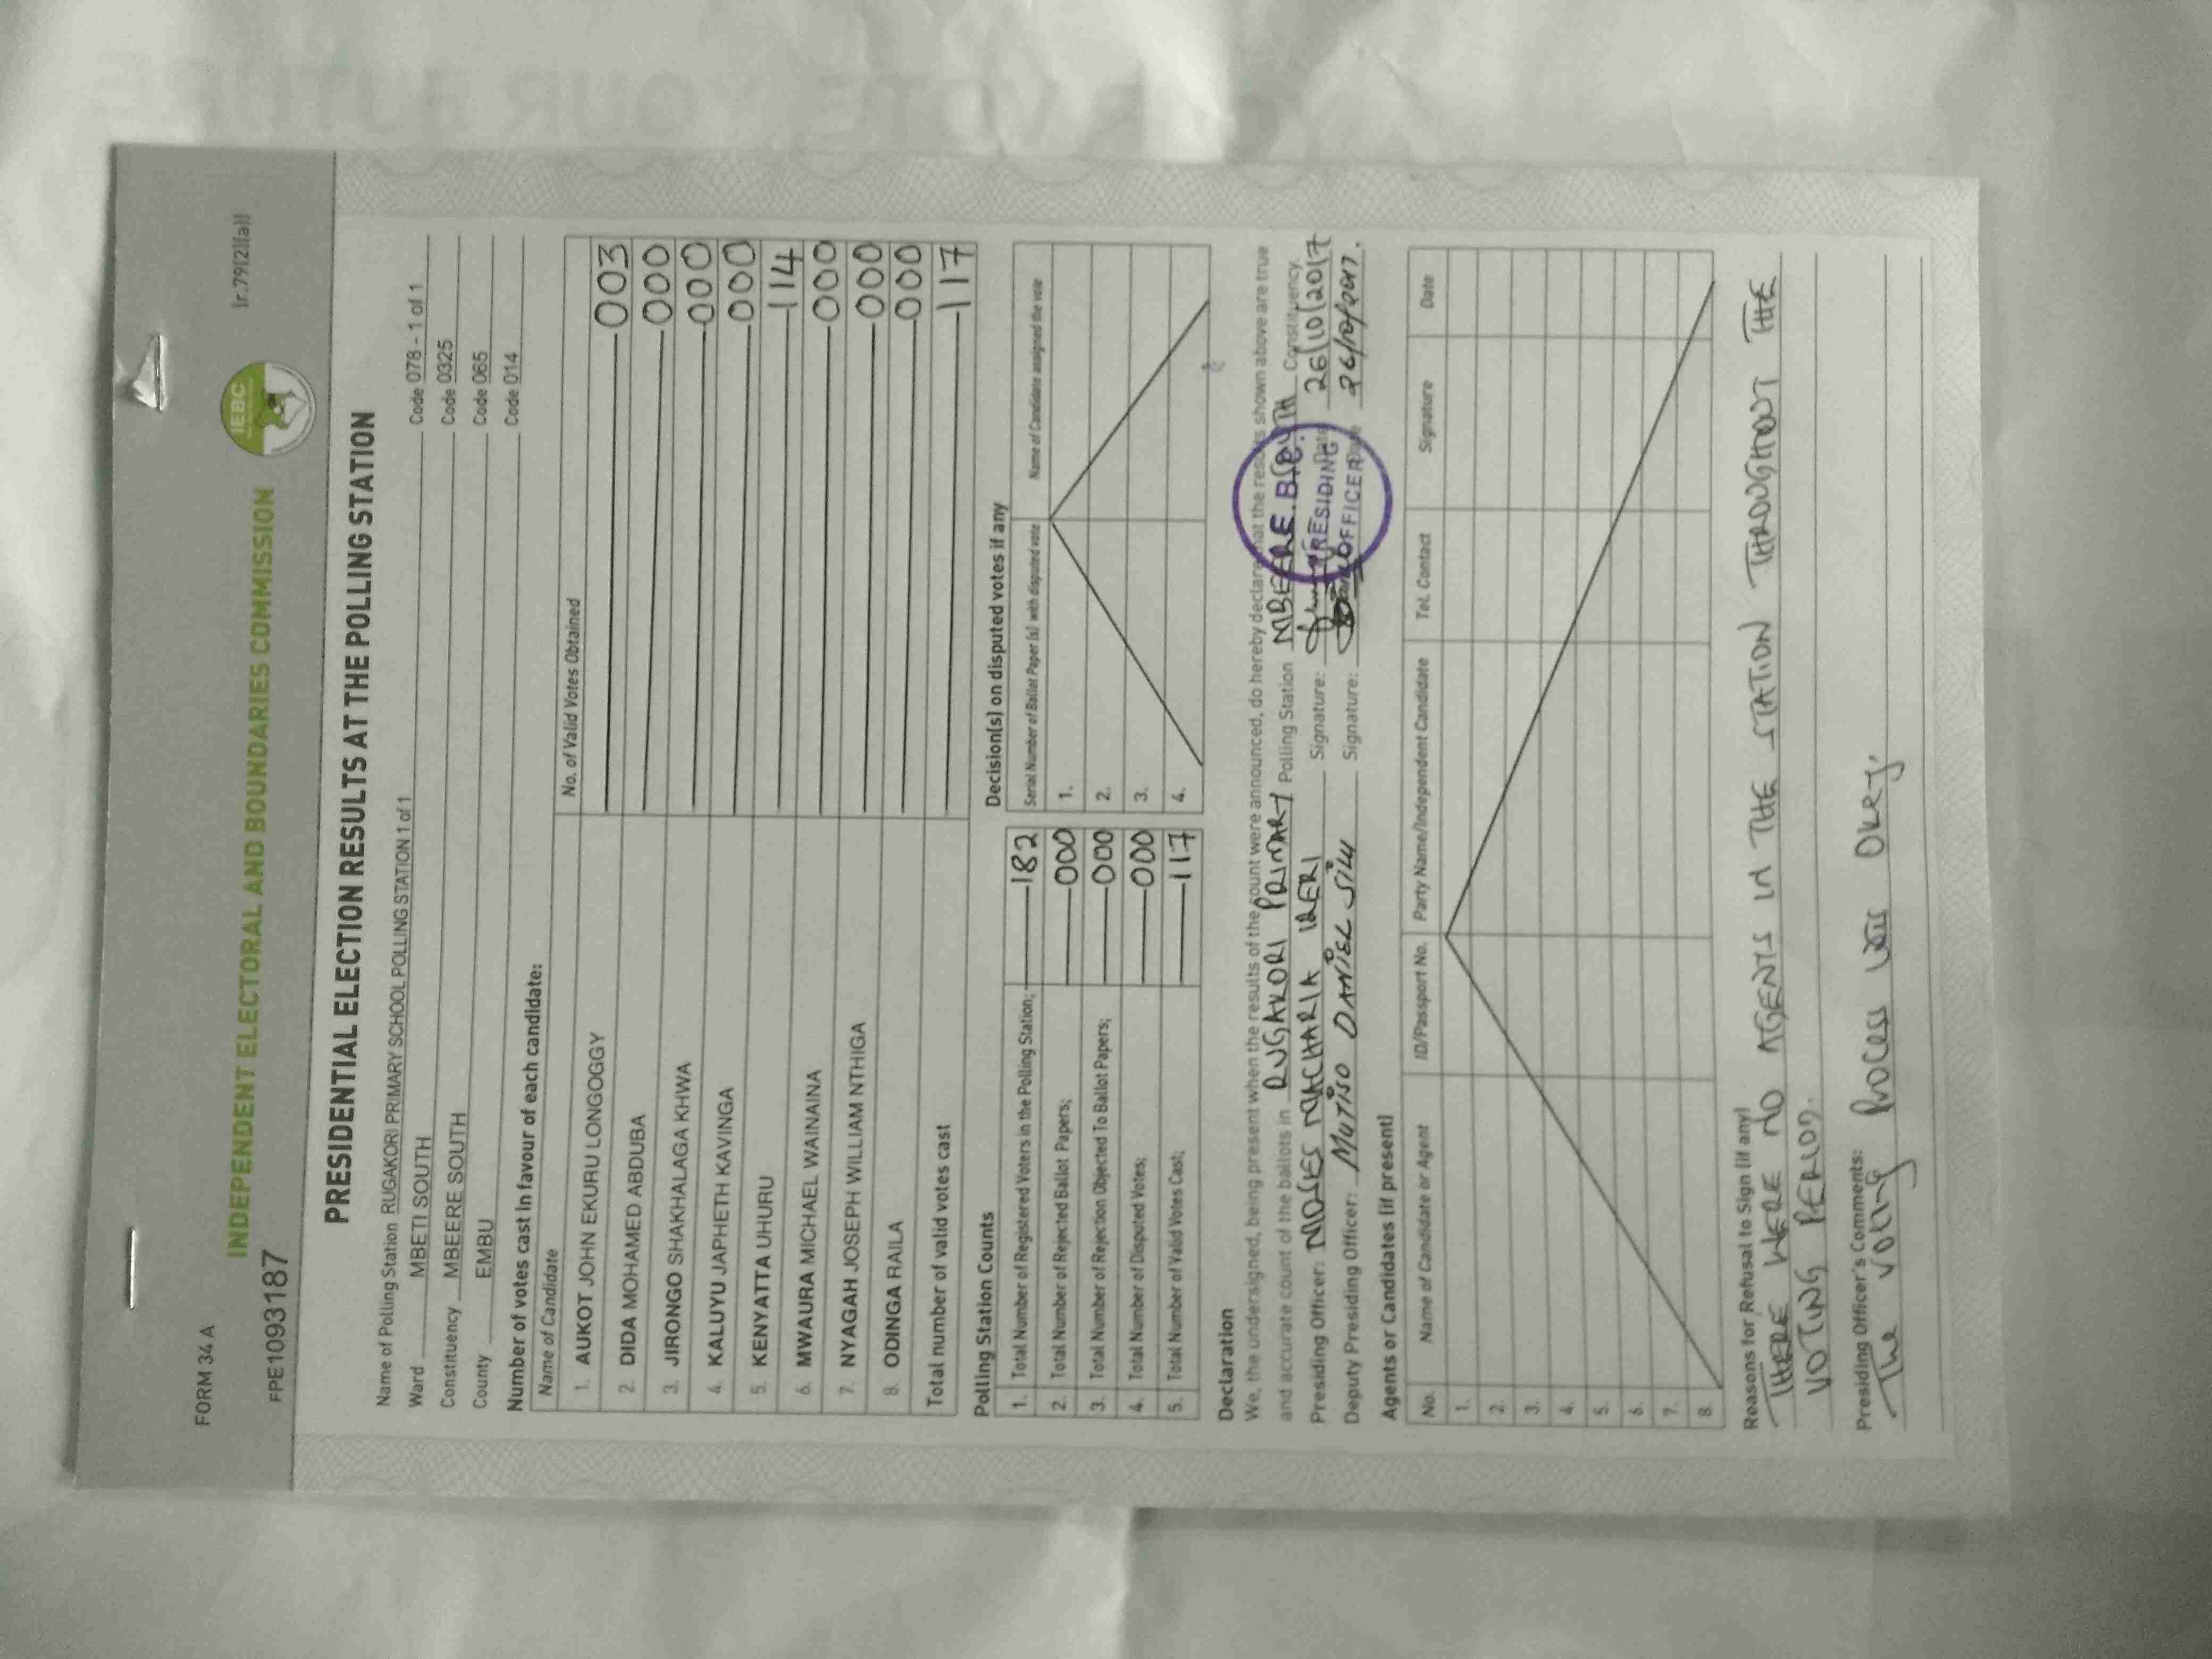 YOUR VOTE, YOUR FUTURE
FORM 34 A
(r.79(2)(a))
IEBC
INDEPENDENT ELECTORAL AND BOUNDARIES COMMISSION
FPE1093187
PRESIDENTIAL ELECTION RESULTS AT THE POLLING STATION
Name of Polling Station RUGAKORI PRIMARY SCHOOL POLLING STATION 1 of 1 Code 078 - 1 of 1
Ward MBETI SOUTH Code 0325
Constituency MBEERE SOUTH Code 065
County EMBU Code 014
Number of votes cast in favour of each candidate:
Name of Candidate No. of Valid Votes Obtained
1. AUKOT JOHN EKURU LONGOGGY 003
2. DIDA MOHAMED ABDUBA 000
3. JIRONGO SHAKHALAGA KHWA 000
4. KALUYU JAPHETH KAVINGA 000
5. KENYATTA UHURU 114
6. MWAURA MICHAEL WAINAINA 000
7. NYAGAH JOSEPH WILLIAM NTHIGA 000
8. ODINGA RAILA 000
Total number of valid votes cast 117
Polling Station Counts
1. Total Number of Registered Voters in the Polling Station; 182
2. Total Number of Rejected Ballot Papers; 000
3. Total Number of Rejection Objected To Ballot Papers; 000
4. Total Number of Disputed Votes; 000
5. Total Number of Valid Votes Cast; 117
Decision(s) on disputed votes if any
Serial Number of Ballot Paper (s) with disputed vote Name of Candidate assigned the vote
1.
2.
3.
4.
Declaration
We, the undersigned, being present when the results of the count were announced, do hereby declare that the results shown above are true
and accurate count of the ballots in RUGAKORI PRIMARY Polling Station MBEERE SOUTH Constituency.
Presiding Officer: MOSES MACHARIA IRERI Signature: Date 26/10/2017
Deputy Presiding Officer: MUTISO DANIEL Signature: Date 26/10/2017.
PRESIDING
OFFICER
Agents or Candidates (if present)
No. Name of Candidate or Agent ID/Passport No. Party Name/Independent Candidate Tel. Contact Signature Date
1.
2.
3.
4.
5.
6.
7.
8.
Reasons for Refusal to Sign (if any)
THERE WERE NO AGENTS IN THE STATION THROUGHOUT THE
VOTING PERIOD.
Presiding Officer's Comments:
The voting Process was OKRY.